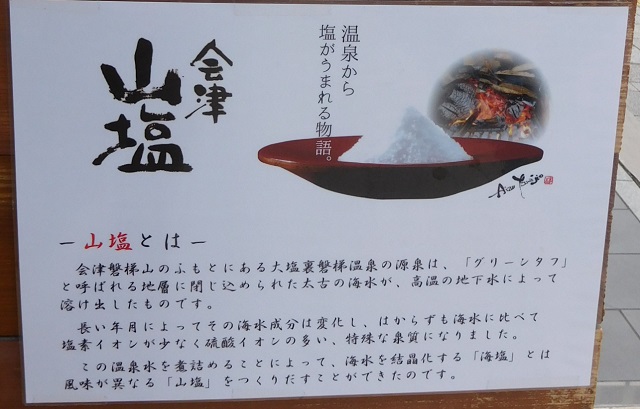 会津
山塩
温泉から
塩がうまれる物語。
Aizu Yamajio
－山塩とは－
会津磐梯山のふもとにある大塩裏磐梯温泉の源泉は、「グリーンタフ」
と呼ばれる地層に閉じ込められた太古の海水が、高温の地下水によって
溶け出したものです。
長い年月によってその海水成分は変化し、はからずも海水に比べて
塩素イオンが少なく硫酸イオンの多い、特殊な泉質になりました。
この温泉水を煮詰めることによって、海水を結晶化する「海塩」とは
風味が異なる「山塩」をつくりだすことができたのです。